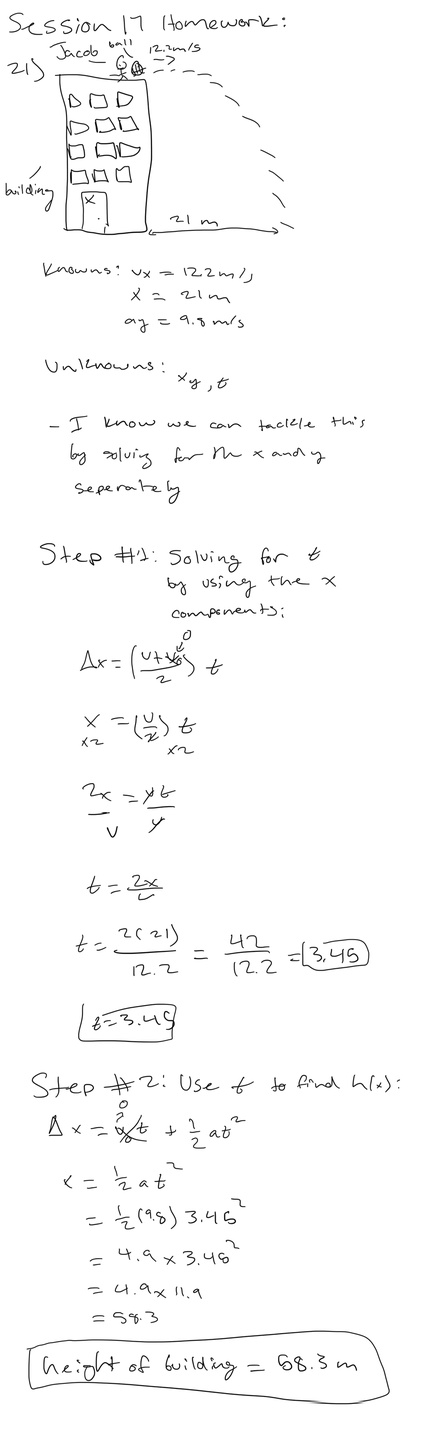 Session 17 Homework:
Jacob ball 12.2m/s
21)
building
x
21 m
Knowns: vx = 12.2 m/s
x = 21m
ay = 9.8 m/s
Unknowns: xy, t
- I know we can tackle this
by solving for the x and y
seperately
Step #1: Solving for t
by using the x
components:
0
Δx = (v+v₀/2) t
x = (v/2) t
x2 x2
2x/v = vt/v
t = 2x/v
t = 2(21)/12.2 = 42/12.2 = 3.45
t = 3.45
Step #2: Use t to find h(x):
0
Δx = v₀t + 1/2 at²
x = 1/2 at²
= 1/2 (9.8) 3.45²
= 4.9 x 3.45²
= 4.9 x 11.9
= 58.3
height of building = 58.3 m